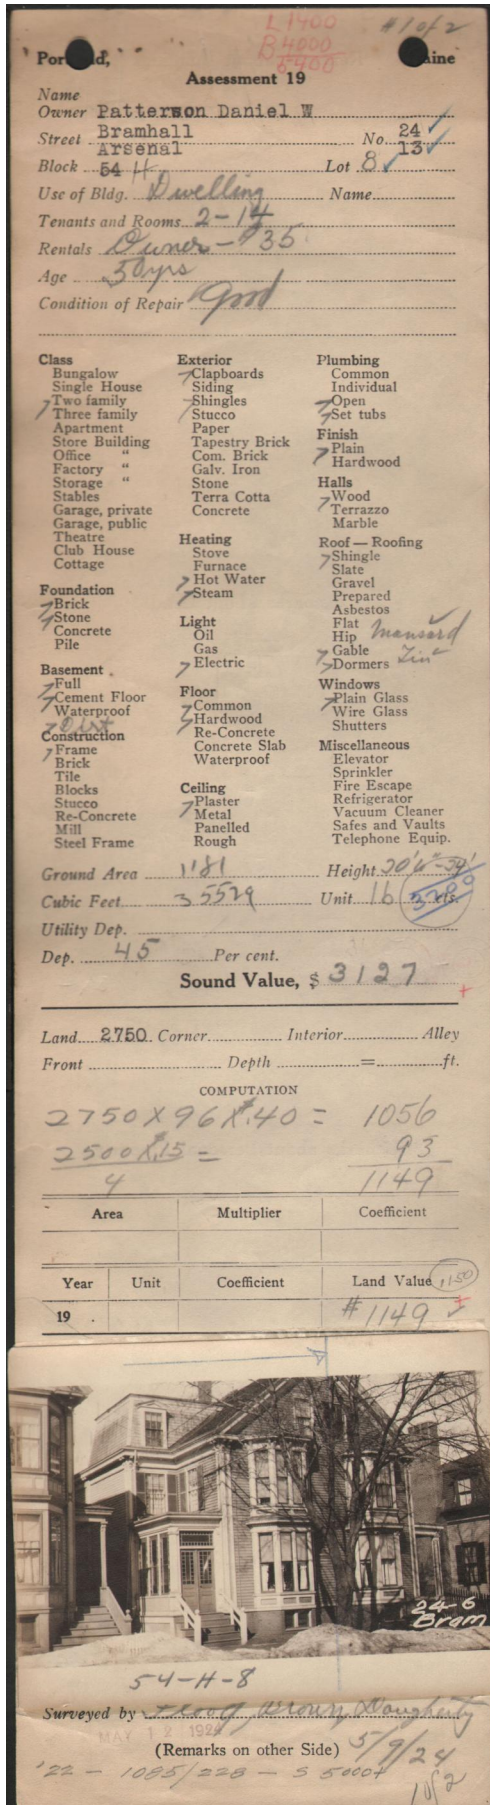 L 1400
B 4000
5400
#1 of 2
Portland, Maine
Assessment 19
Name
Owner Patterson Daniel W
Street Bramhall No. 24
Arsenal 13
Block 54 H Lot 8
Use of Bldg. Dwelling Name
Tenants and Rooms 2-14
Rentals Owner - $35.
Age 50 yrs
Condition of Repair Good
Class
Bungalow
Single House
Two family
Three family
Apartment
Store Building
Office "
Factory "
Storage "
Stables
Garage, private
Garage, public
Theatre
Club House
Cottage
Foundation
Brick
Stone
Concrete
Pile
Basement
Full
Cement Floor
Waterproof
Dirt
Construction
Frame
Brick
Tile
Blocks
Stucco
Re-Concrete
Mill
Steel Frame
Exterior
Clapboards
Siding
Shingles
Stucco
Paper
Tapestry Brick
Com. Brick
Galv. Iron
Stone
Terra Cotta
Concrete
Heating
Stove
Furnace
Hot Water
Steam
Light
Oil
Gas
Electric
Floor
Common
Hardwood
Re-Concrete
Concrete Slab
Waterproof
Ceiling
Plaster
Metal
Panelled
Rough
Plumbing
Common
Individual
Open
Set tubs
Finish
Plain
Hardwood
Halls
Wood
Terrazzo
Marble
Roof — Roofing
Shingle
Slate
Gravel
Prepared
Asbestos
Flat
Hip Mansard
Gable
Dormers Tin
Windows
Plain Glass
Wire Glass
Shutters
Miscellaneous
Elevator
Sprinkler
Fire Escape
Refrigerator
Vacuum Cleaner
Safes and Vaults
Telephone Equip.
Ground Area 1181 Height 20'6"-34'
Cubic Feet 35529 Unit 16 cts.
3200
Utility Dep.
Dep. 45 Per cent.
Sound Value, $ 3127
Land 2750 Corner Interior Alley
Front Depth = ft.
COMPUTATION
2750 X 96 X $.40 = 1056
2500 X .15 = 93
4 1149
Area Multiplier Coefficient
Year Unit Coefficient Land Value 1150
19 . #1149
24-6
Bram
54-H-8
Surveyed by Flood, Brown, Dougherty
MAY 12 1924
(Remarks on other Side) 5/9/24
'22 - 1085/228 - $ 5000+
1 of 2